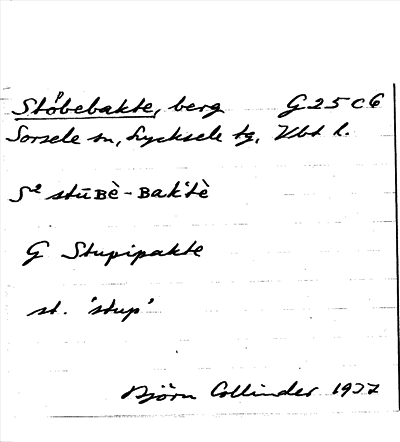 Stöbebakte, berg G 25 C 6
Sorsele sn, Lycksele tg, Vbt l.
S² stūʙè-ʙak'tè
G Stupipakte
st. 'stup'
Björn Collinder 1937